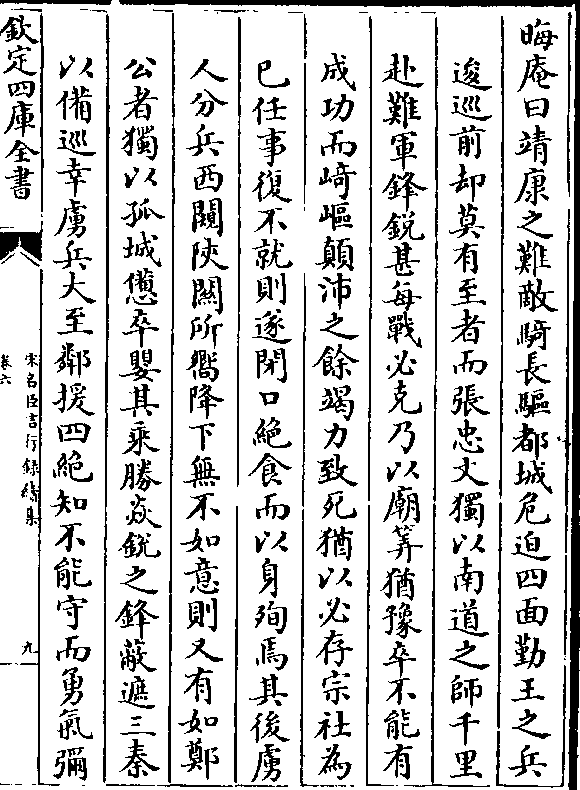 晦庵曰靖康之難敵騎長驅都城危迫四面勤王之兵
逡巡前却莫有至者而張忠文獨以南道之師千里
赴難軍鋒鋭甚每戰必克乃以廟筭猶豫卒不能有
成功而崎嶇顛沛之餘竭力致死猶以必存宗社為
已任事復不就則遂閉口絶食而以身殉焉其後虜
人分兵西闚陜闗所嚮降下無不如意則又有如鄭
公者獨以孤城憊卒嬰其乘勝焱鋭之鋒蔽遮三秦
以備巡幸虜兵大至鄰援四絶知不能守而勇氣彌
欽定四庫全書
宋名臣言行録續集
卷六
九